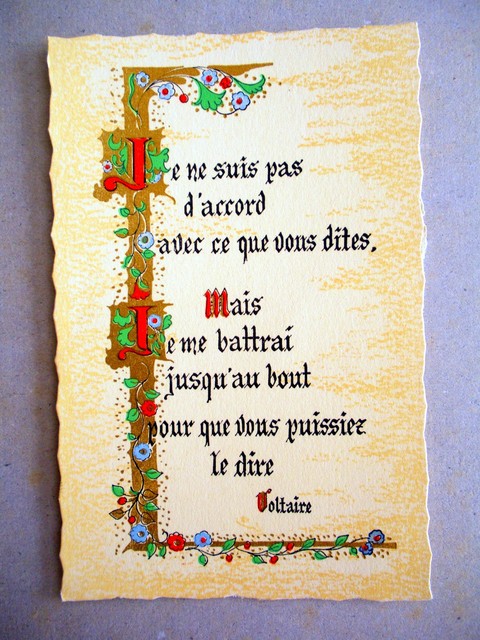 Je ne suis pas
d'accord
avec ce que vous dîtes.
Mais
Je me battrai
jusqu'au bout
pour que vous puissiez
le dire
Voltaire